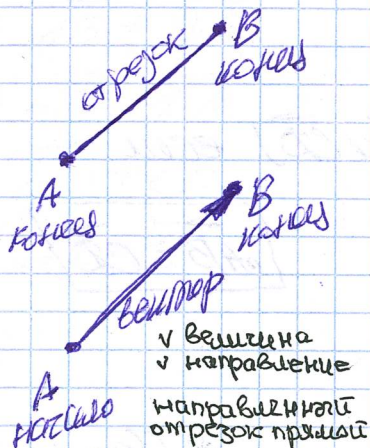 отрезок
B
конец
A
конец
B
конец
вектор
A
начало
v величина
v направление
направленный
отрезок прямой